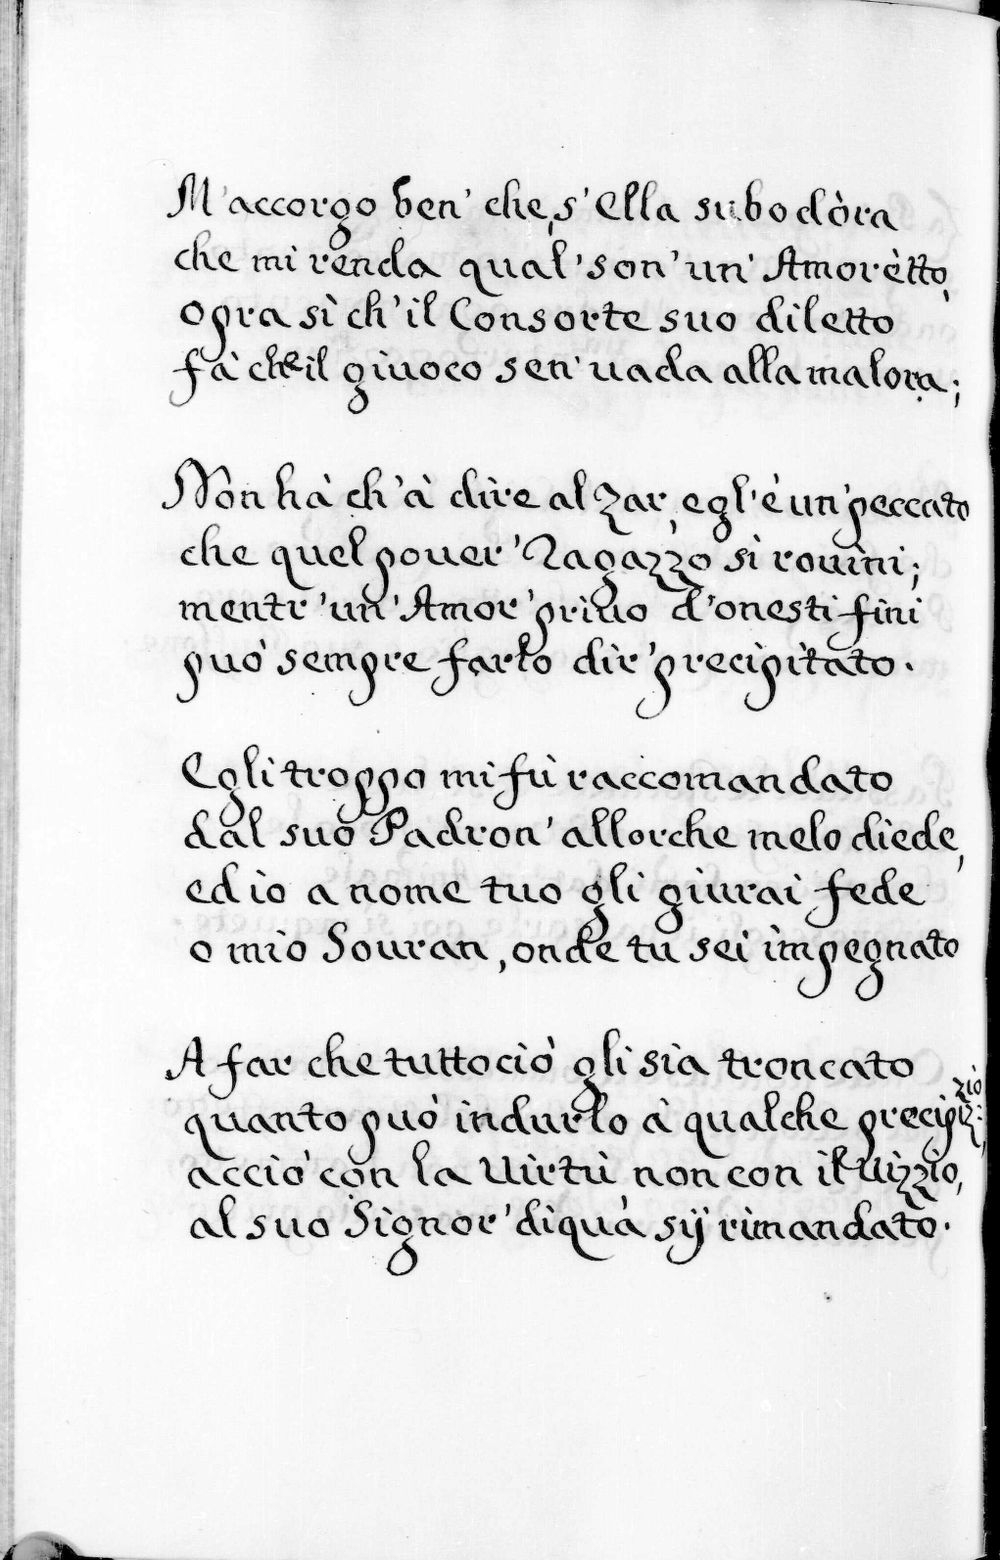 M'accorgo ben' che, s'Ella subodòra
che mi renda qual' son' un' Amorètto,
opra sì ch'il Consorte suo diletto
fà che il giuoco sen' uada alla malora;
Non hà ch'à dire al Zar, egl'è un' peccato
che quel pouer' Ragazzo si rouini;
mentr' un' Amor' priuo d'onesti fini
può sempre farlo dir' precipitato.
Egli troppo mi fù raccomandato
dal suo Padron' allorche melo diede,
ed io a nome tuo gli giurai fede
o mio Souran, onde tu sei impegnato
A far che tuttociò gli sia troncato
quanto può indurlo à qualche precipizio;
acciò con la Uirtù non con il Uizzio,
al suo Signor' diquà sij rimandato.